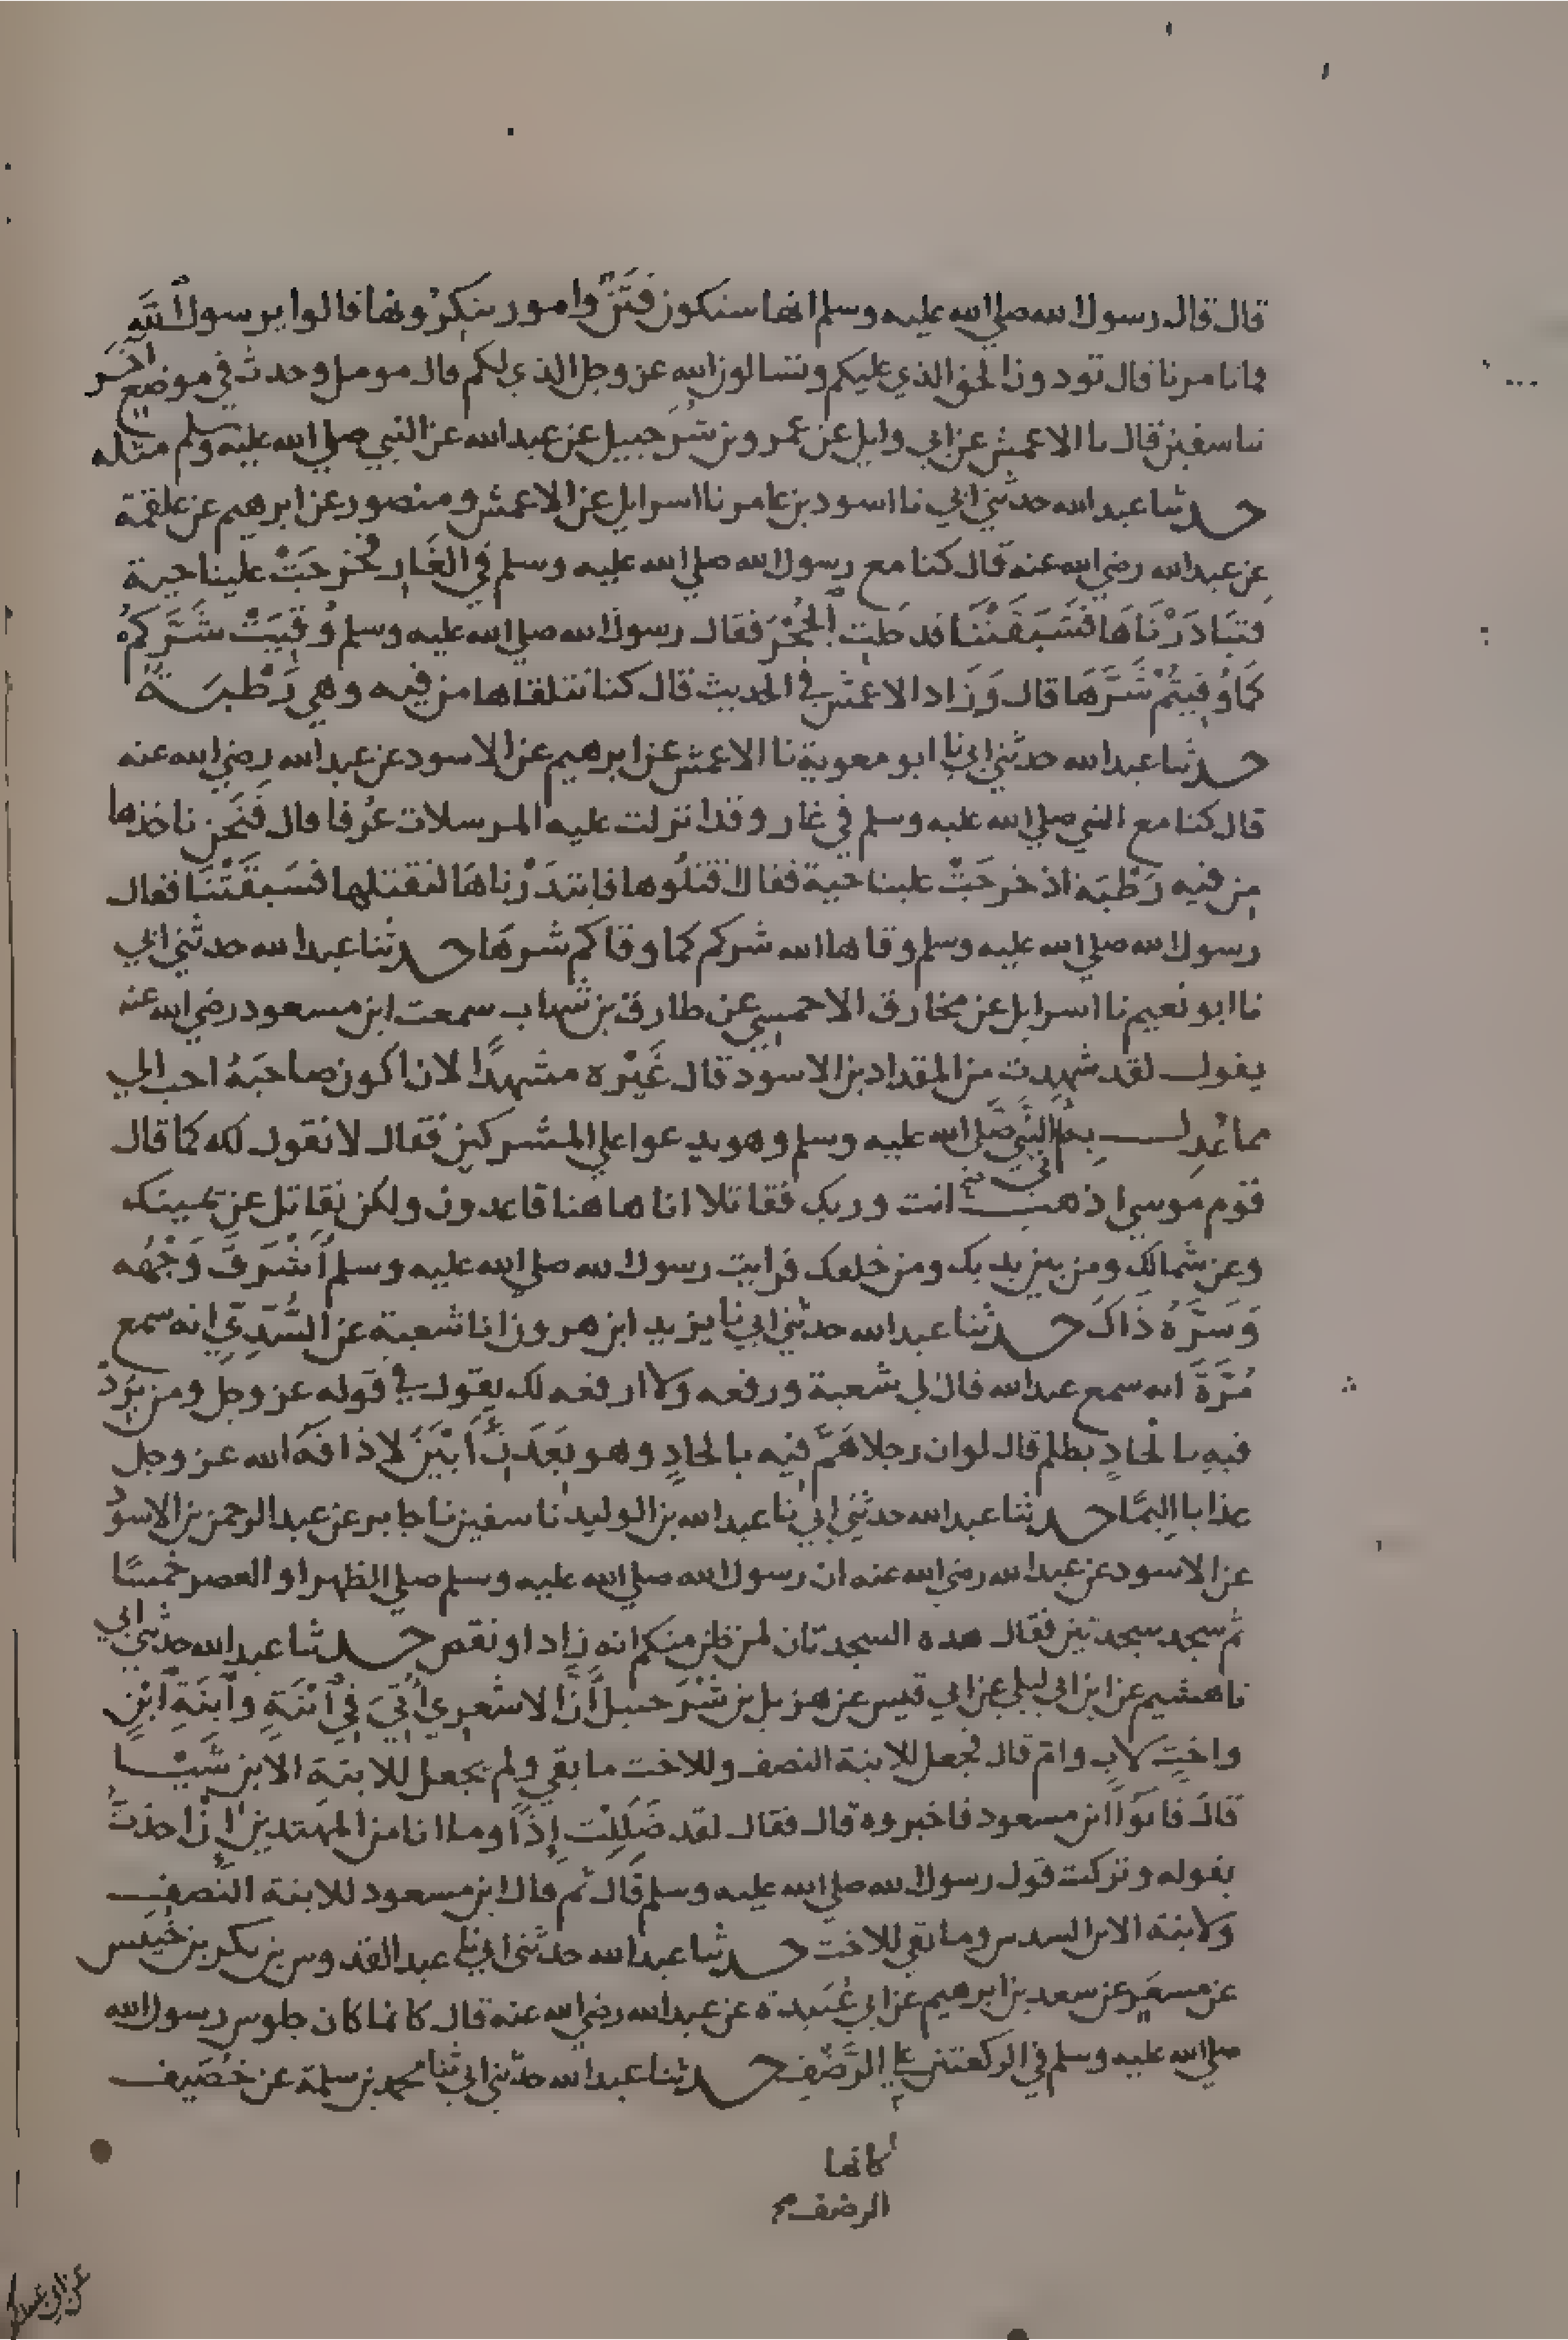 قال قال رسول الله صلى الله عليه وسلم انها ستكون فتن وامور تنكرونها قالوا يرسول الله
فما تامرنا قال تودون الحق الذي عليكم وتسالون الله عز وجل الذي لكم قال مومل وحدث في موضع آخر
نا سفين قال نا الاعمش عن ابي وايل عن عمرو بن شُرَحبيل عن عبد الله عن النبي صلى الله عليه وسلم مثله
حدثنا عبد الله حدثني ابي نا اسود بن عامر نا اسرايل عن الاعمش ومنصور عن ابرهيم عن علقمة
عن عبد الله رضي الله عنه قال كنا مع رسول الله صلى الله عليه وسلم في الغَارِ فخرجَتْ علينا حية
فتبَادَرْنَاهَا فَسَبَقَتْنَا فدخلت الجُحْرَ فقال رسول الله صلى الله عليه وسلم وُقِيَتْ شَرَّكم
كَمَا وُقِيتُمْ شَرَّهَا قال وَزَاد الاعمش في الحديث قال كنا نتلقاها من فيه وهي رَطْبَةٌ
حدثنا عبد الله حدثني ابي نا ابو معوية نا الاعمش عن ابرهيم عن الاسود عن عبد الله رضي الله عنه
قال كنا مع النبي صلى الله عليه وسلم في غار وقد انزلت عليه المرسلات عُرفا قال فَنَحن ناخذها
من فيه رَطْبَة اذ خرجَتْ علينا حية فقال اقتلُوها فابتدَرْناهَا لنقتلها فسَبقَتْنَا فقال
رسول الله صلى الله عليه وسلم وقاها الله شركم كما وقاكم شرهَا حدثنا عبد الله حدثني ابي
نا ابو نُعيم نا اسرايل عن مخارق الاحمسي عن طارق بن شهاب سمعت ابن مسعود رضي الله عنه
يقول لقد شهدت من المقداد بن الاسود قال غَيْره مشهدًا لان اكون صاحبَهُ احب الي
مما عُدِل به اتى النبيَّ صلى الله عليه وسلم وهو يدعوا على المشركين فقال لا نقول لك كما قال
قوم موسى اذهب انت وربك فقاتلا انا هاهنا قاعدون ولكن نقاتل عن يمينك
وعن شمالك ومن بين يديك ومن خلفك فرايت رسول الله صلى الله عليه وسلم أَشْرَقَ وَجْهُه
وَسَرَّهُ ذَاكَ حدثنا عبد الله حدثني ابي نا يزيد ابن هرون انا شعبة عن السُّدِّيِّ انه سمع
مُرَّةَ انه سمع عبد الله قال لي شعبة ورفعه ولا ارفعه لك يقول في قوله عز وجل ومن يُرِدْ
فيهِ بالحادٍ بظلم قال لو ان رجلا هَمَّ فيه بالحادٍ وهو بعَدَنِ أَبْيَنَ لاذاقهَ الله عز وجل
عذابا اليمًا حدثنا عبد الله حدثني ابي نا عبد الله بن الوليد نا سفين نا جابر عن عبد الرحمن بن الاسود
عن الاسود عن عبد الله رضي الله عنه ان رسول الله صلى الله عليه وسلم صلى الظهر او العصر خمسًا
ثم سجد سجدتين فقال هذه السجدتان لمن ظن منكم انه زاد او نقص حدثنا عبد الله حدثني ابي
نا هشيم عن ابن ابي ليلى عن ابي قيس عن هزيل بن شُرَحبيل أَنَّ الاشعري أُتِيَ في ٱبْنَةٍ وٱبنَةِ ٱبْنٍ
واختٍ لابٍ وام قال فجعل للابنة النصف وللاخت ما بقي ولم يجعل للابنةِ الابن شَيْـا
قال فاتَوا ابن مسعود فاخبروه قال فقال لقد ضَلَلتُ إذًا وما انا من المهتدين إن اخذتُ
بقوله وتركت قول رسول الله صلى الله عليه وسلم قال ثم قال ابن مسعود للابنة النصف
ولابنة الابن السدس وما بقي للاخت حدثنا عبد الله حدثني ابي نا عبد القدوس بن بكر بن خُنيس
عن مسعَر عن سعد بن ابرهيم عن ابي عُبَيدة عن عبد الله رضي الله عنه قال كانما كان جلوس رسول الله
صلى الله عليه وسلم في الركعتين على الرَّضْفِ حدثنا عبد الله حدثني ابي ثنا محمد بن سلمة عن خُصَيف
كانما
الرضف